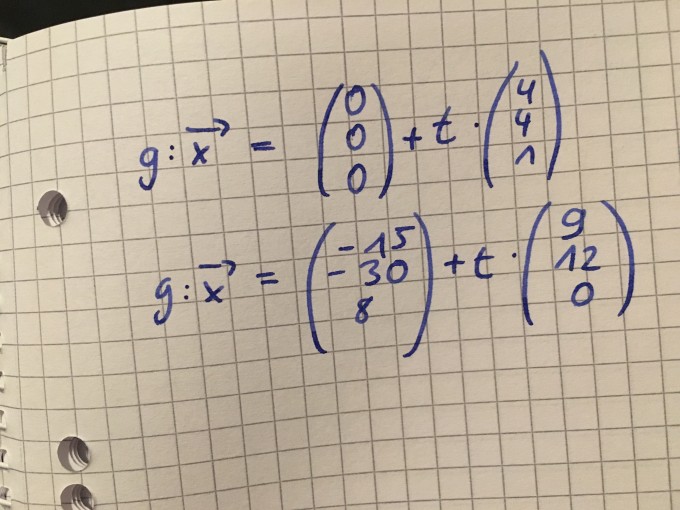 g: x⃗ = (0 0 0) + t · (4 4 1)
g: x⃗ = (-15 -30 8) + t · (9 12 0)